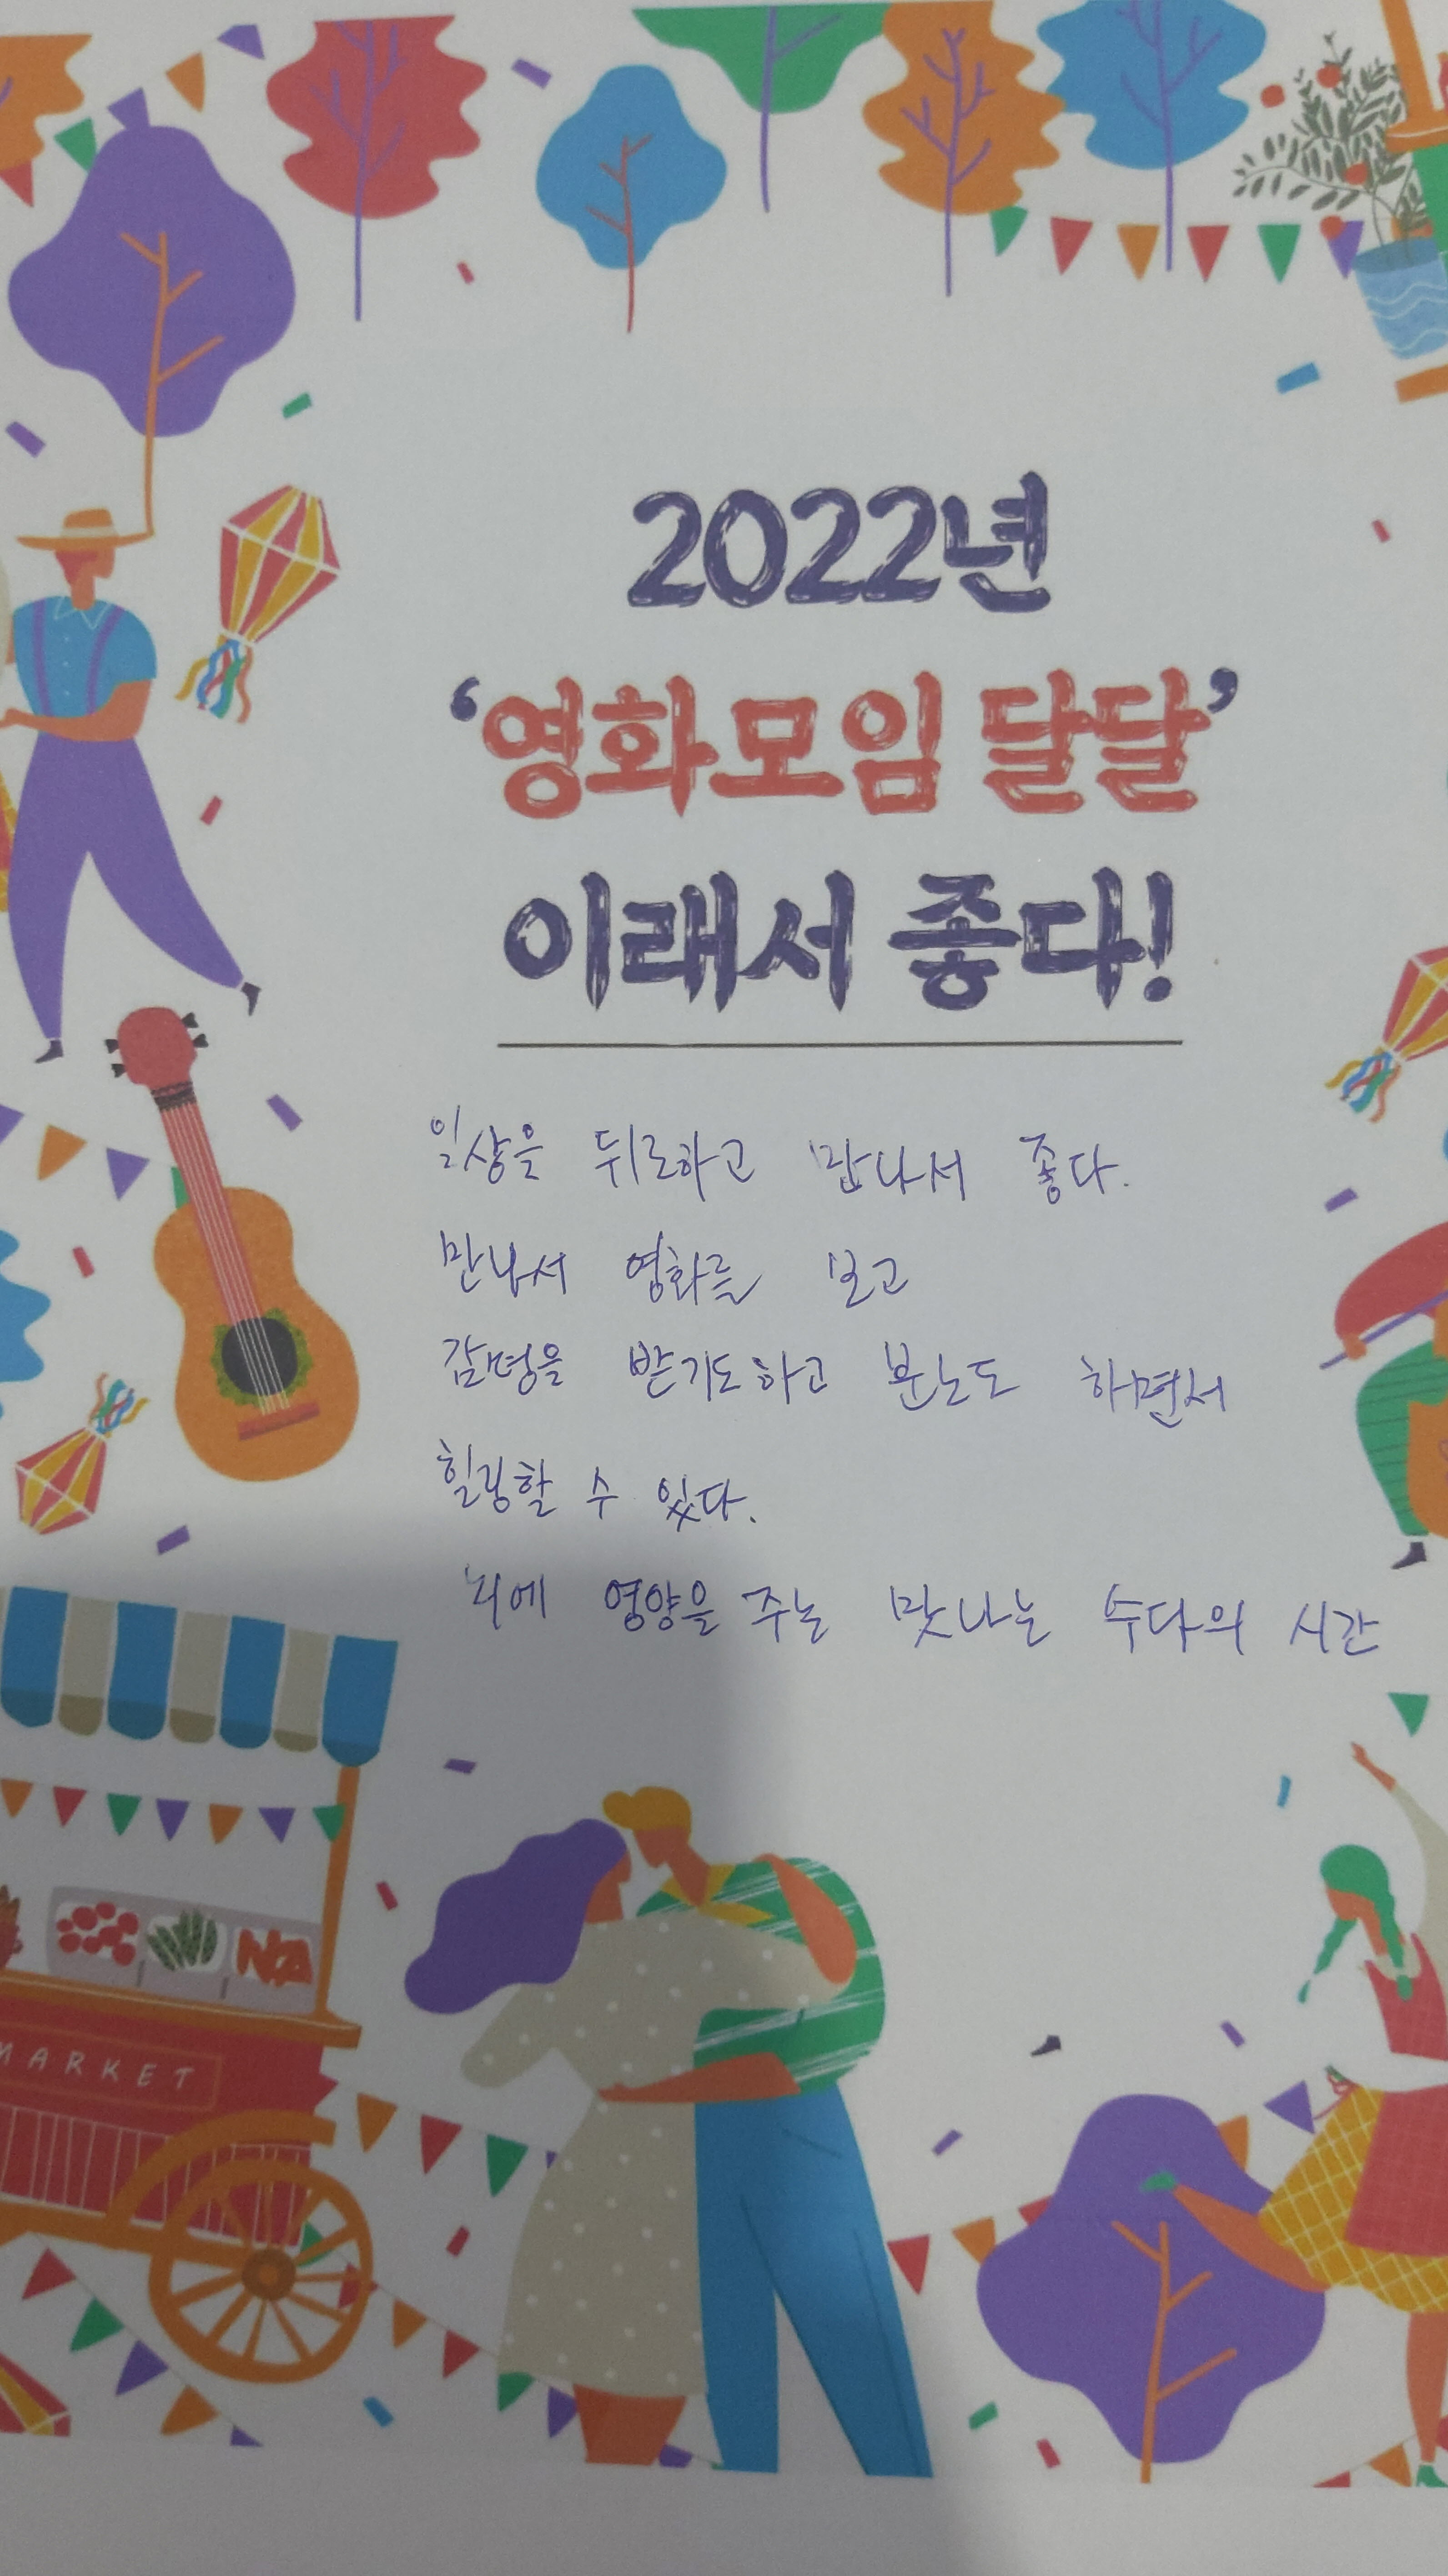 2022년
‘영화모임 달달’
이래서 좋다!
일상을 뒤로하고 만나서 좋다.
만나서 영화를 보고
감명을 받기도하고 분노도 하면서
힐링할 수 있다.
뇌에 영양을 주는 맛나는 수다의 시간
MARKET